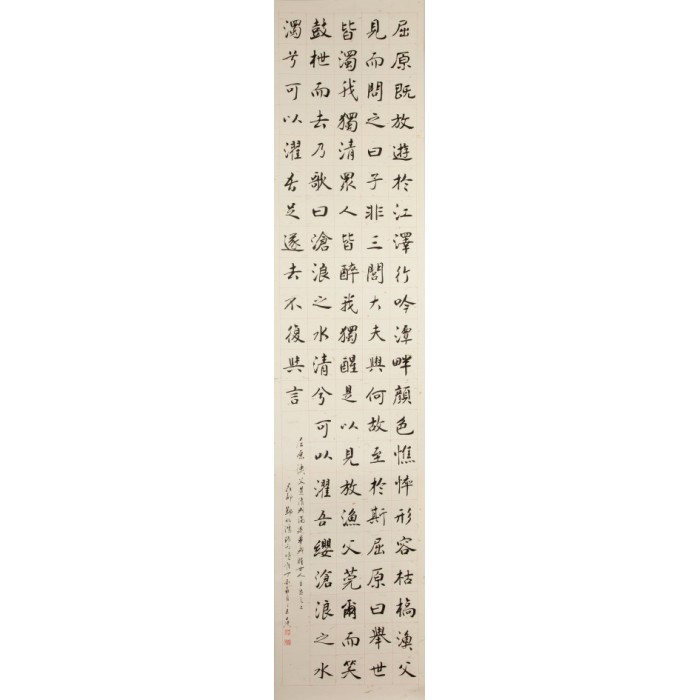 屈原既放遊於江澤行吟潭畔顏色憔悴形容枯槁漁父
見而問之曰子非三閭大夫與何故至於斯屈原曰舉世
皆濁我獨清眾人皆醉我獨醒是以見放漁父莞爾而笑
鼓枻而去乃歌曰滄浪之水清兮可以濯吾纓滄浪之水
濁兮可以濯吾足遂去不復與言
屈原漁父